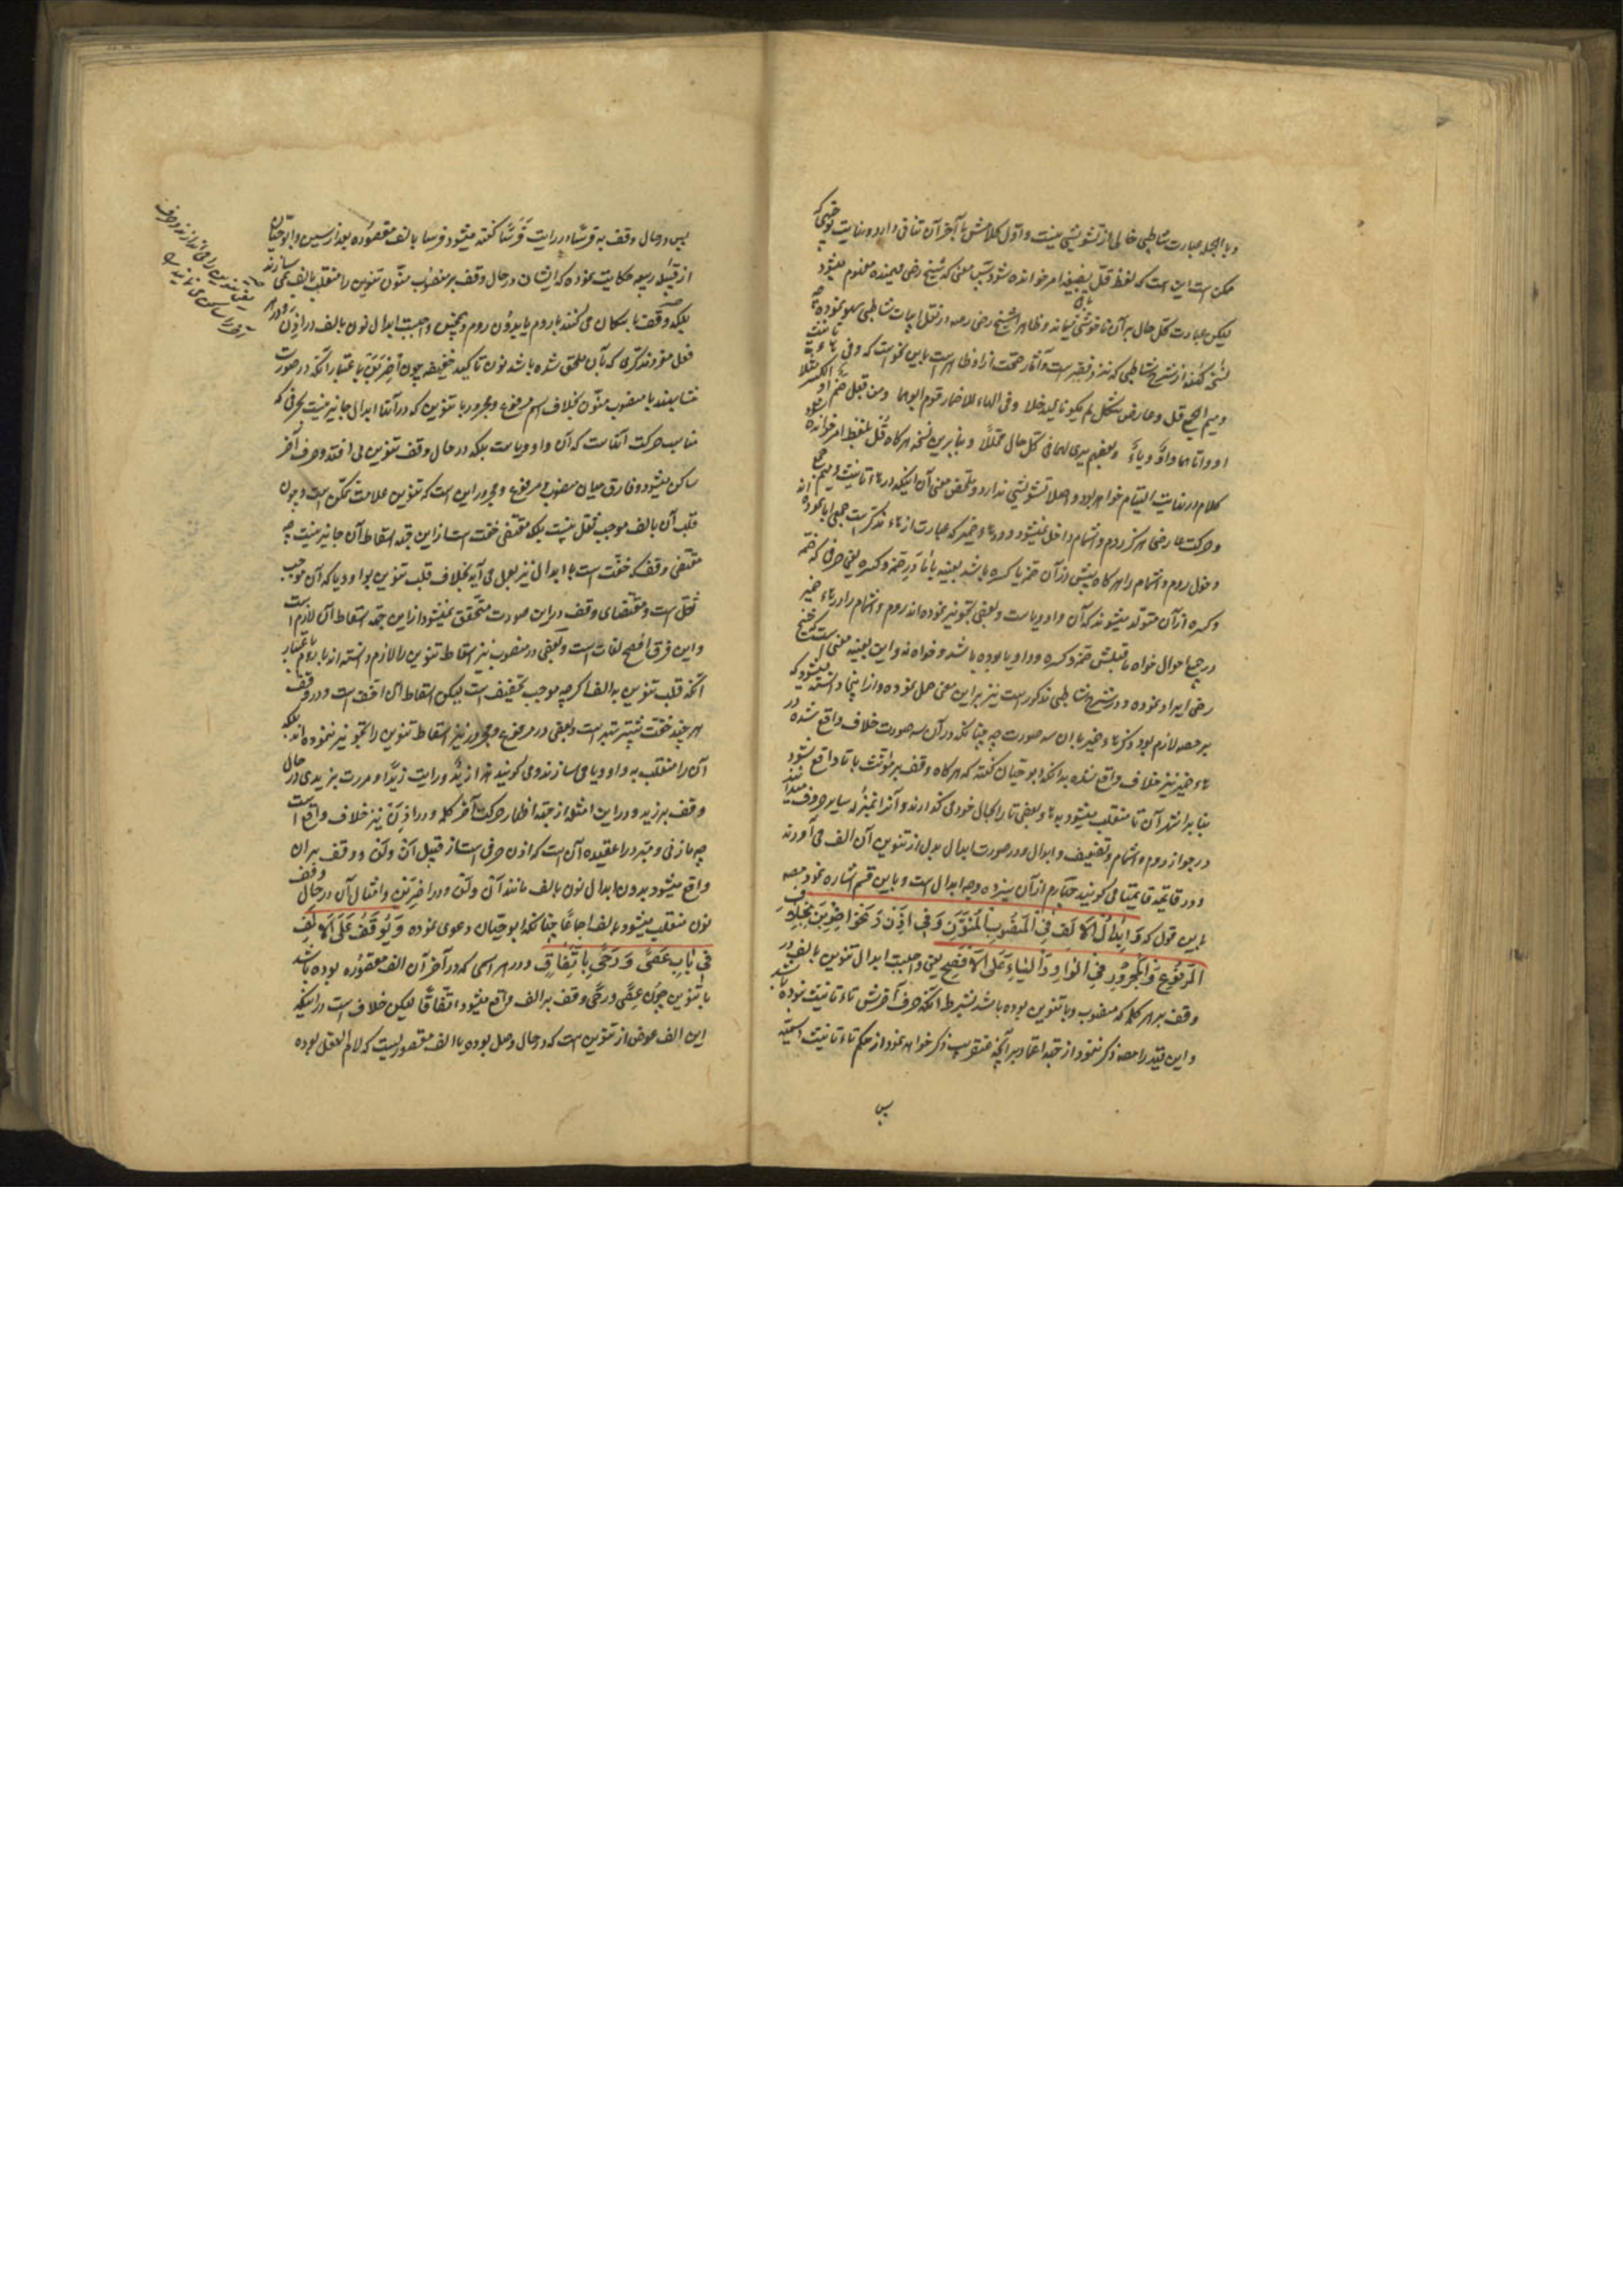 وبالجمله عبارت شاطبی خالی از تشویشی نیست و اول کلامش با آخر آن تنافی دارد و نهایت توجیهی که
ممکن است این است که لفظ قل بصیغه امر خوانده شود
لیکن عبارت کل حال بر آن ناخوشی میماند و ظاهرا شیخ رضی رحمه در نقل ابیات شاطبی سهو نموده چه
نسخه کهنه از شرح شاطبی که نزد فقیر است و آثار صحت از او ظاهر است باین نحو است که وفی هاء تانیث
ومیم الجمع قل وعارض شکل لم یکونا لیدخلا وفی الهاء للاضمار قوم ابوهما ومن قبله ضم او الکسر مثلا
او واماهما واو ویاء وبعضهم یری لهما فی کل حال محللا وبنابرین نسخه هرگاه قل بلفظ امر خوانده شود
کلام در نهایت التیام خواهد بود و اصلا تشویشی ندارد و ملخص معنی آن اینکه در هاء تانیث و میم جمع
وحرکت عارضی هرگز روم و اشمام داخل نمیشود و در هاء ضمیر که عبارت از هاء مذکر است جمعی ابا نموده اند
دخول روم و اشمام را هرگاه پیش از آن ضمه یا کسره باشد
وکسره از آن متولد میشوند که آن واو و یاست و بعضی تجویز نموده اند روم و اشمام را در هاء ضمیر
در جمیع احوال خواه ماقبلش ضمه و کسره و واو و یا بوده باشد و خواه نه و این بعینه معنی است که شیخ
رضی ایراد نموده و در شرح شاطبی مذکور است نیز بر این معنی حمل نموده و از اینجا دانسته میشود که
بر مصه لازم بود ذکر هاء ضمیر با آن سه صورت چه چنانکه در آن سه صورت خلاف واقع شده در
هاء ضمیر نیز خلاف واقع شده بدانکه ابوحیان گفته که هرگاه وقف بر مؤنث با تا واقع شود
بنا بر اشهر آن تا منقلب میشود به هاء و بعضی تا را بحال خود می گذارند و آنرا بمنزله سایر حروف میدانند
در جواز روم و اشمام و تضعیف و ابدال و در صورت ابدال بدل از تنوین آن الف می آورند
ودر قایمة قایمتا می گویند چهارم از آن سیزده وجه ابدال است و باین قسم اشاره نمود مصه
باین قول که وَاِبْدالُ الاَلِفِ فِی الْمَنْصُوبِ الْمُنَوَّنِ وَفِی اِذَنْ وَنَحْوِ اضْرِبَنْ بِخِلافِ
الْمَرْفُوعِ وَالْمَجْرُورِ فِی الْوَاوِ وَالْیَاءِ عَلَی الاَفْصَحِ یعنی واجبست ابدال تنوین بالف در
وقف بر هر کلمه که منصوب و با تنوین بوده باشد بشرط آنکه حرف آخرش تاء تانیث نبوده باشد
و این قید را مصه ذکر ننمود از جهة اعتماد بر آنچه عنقریب ذکر خواهد نمود از حکم تاء تانیث اسمیه
پس
پس در حال وقف به فرسا در رایت فرسا گفته میشود فرسا بالف مقصوره بعد از سین و ابوحیان
از قبیله ربیعه حکایت نموده که ایشان در حال وقف بر منصوب منون تنوین را منقلب بالف نمی سازند
بلکه وقف باسکان می کنند با روم یا بدون روم و همچنین واجبست ابدال نون بالف در اذن و در
فعل مفرد مذکری که بآن ملحق شده باشد نون تاکید خفیفه چون اضربن باعتبار آنکه در صورت
متشابهند با منصوب منون بخلاف اسم مرفوع و مجرور با تنوین که در آنها ابدال جایز نیست بحرفی که
مناسب حرکت آنهاست که آن واو و یاست بلکه در حال وقف تنوین می افتد و حرف آخر
ساکن میشود و فارق میان منصوب و مرفوع و مجرور این است که تنوین علامت تمکن است و چون
قلب آن بالف موجب ثقل نیست بلکه مقتضی خفت است از این جهة اسقاط آن جایز نیست چه
مقتضی وقف که خفت است با ابدال نیز بعمل می آید بخلاف قلب تنوین بواو و یا که آن موجب
ثقل است و مقتضای وقف در این صورت متحقق نمیشود از این جهة اسقاط آن لازم است
و این فرق افصح لغات است و بعضی در منصوب نیز اسقاط تنوین را لازم دانسته اند باعتبار
آنکه قلب تنوین به الف اگرچه موجب تخفیف است لیکن اسقاط آن اخف است و در وقف
هر چند خفت بیشتر بهتر است و بعضی در مرفوع و مجرور نیز اسقاط تنوین را تجویز ننموده اند بلکه
آن را منقلب به واو و یا می سازند و می گویند هذا زیدو و رایت زیدا و مررت بزیدی در حال
وقف بر زید و در این امثله از جهة اظهار حرکت آخر کلمه و در اذن نیز خلاف واقع است
چه مازنی و مبرد را عقیده آن است که اذن حرفی است از قبیل ان و لن و وقف بر آن
واقع میشود بدون ابدال نون بالف مانند ان و لن و در اضربن و امثال آن در حال وقف
نون منقلب میشود بالف اجماعا چنانکه ابوحیان دعوی نموده وَیُوقَفُ عَلَی الاَلِفِ
فِی بابِ عَصًی وَرَحًی بِاتِّفاقٍ و در هر اسمی که در آخر آن الف مقصوره بوده باشد
با تنوین چون عصی و رحی وقف بر الف واقع میشود اتفاقا لیکن خلاف است در اینکه
این الف عوض از تنوین است که در حال وصل بوده یا الف مقصوریست که لام الفعل بوده